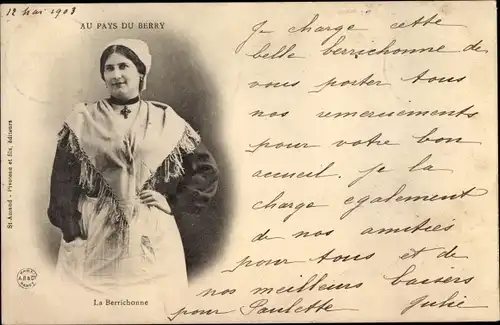 12 mai 1903
AU PAYS DU BERRY
Je charge cette
belle berrichonne de
vous porter tous
nos remerciements
pour votre bon
accueil. Je la
charge également
de nos amitiés
pour tous et de
nos meilleurs baisers
pour Paulette Julie
St-Amand - et fils, éditeurs
La Berrichonne